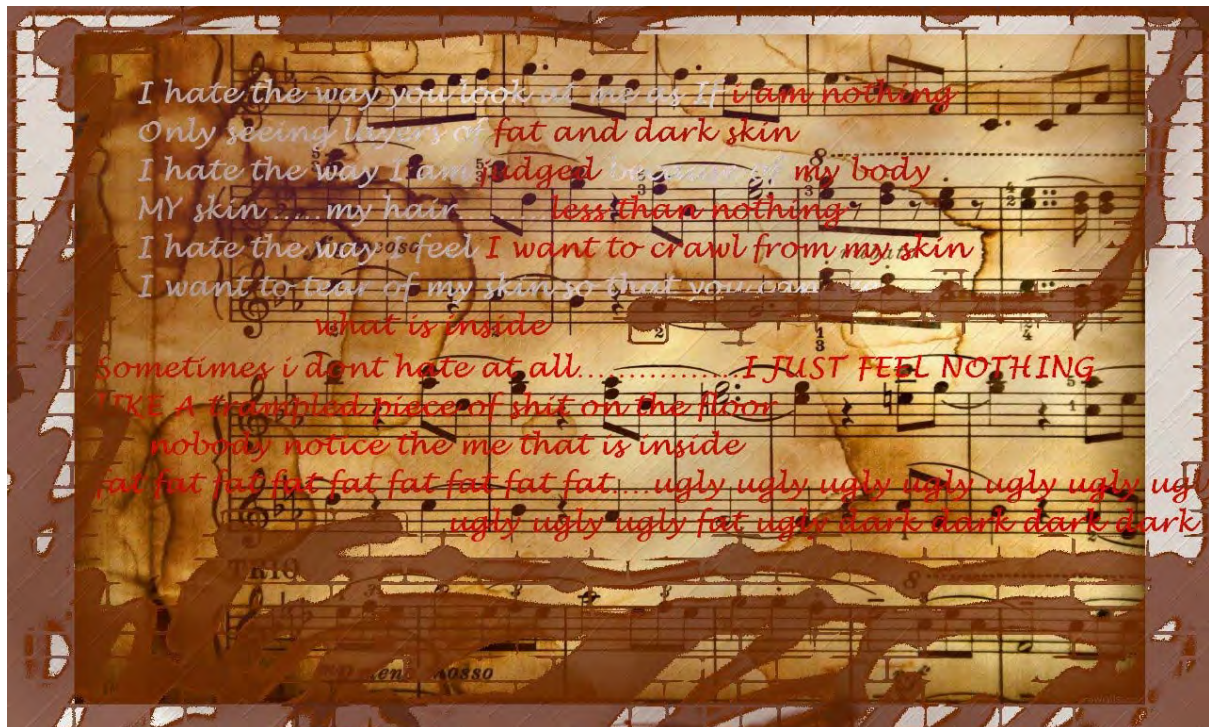 I hate the way you look at me as If i am nothing
Only seeing layers of fat and dark skin
I hate the way I am judged because of my body
MY skin .....my hair..........less than nothing
I hate the way I feel I want to crawl from my skin
I want to tear of my skin so that you can
what is inside
Sometimes i dont hate at all..................I JUST FEEL NOTHING
LIKE A trampled piece of shit on the floor
nobody notice the me that is inside
fat fat fat fat fat fat fat fat fat....ugly ugly ugly ugly ugly ugly ugl
ugly ugly ugly fat ugly dark dark dark dark
TRIO